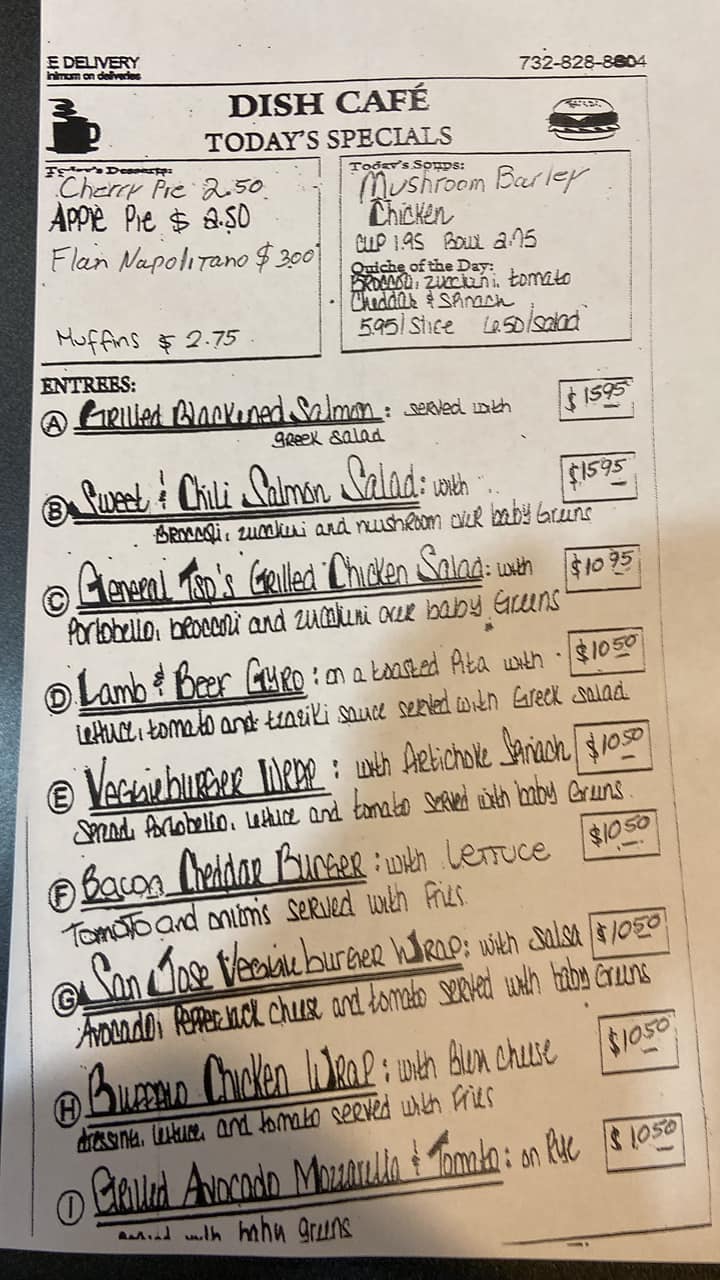 E DELIVERY
inimum on deliveries
732-828-8804
DISH CAFÉ
TODAY'S SPECIALS
Today's Desserts:
Cherry Pie 2.50
Apple Pie $ 2.50
Flan Napolitano $ 3.00
Muffins $ 2.75
Today's Soups:
Mushroom Barley
Chicken
Cup 1.95 Bowl 2.75
Quiche of the Day:
Broccoli, zucchini, tomato
Cheddar & Spinach
5.95/Slice 6.50/salad
ENTREES:
A Grilled Blackened Salmon: served with $15.95
greek salad
B Sweet & Chili Salmon Salad: with $15.95
Broccoli, zucchini and mushroom over baby Greens
C General Tso's Grilled Chicken Salad: with $10.95
Portobello, broccoli and zucchini over baby Greens
D Lamb & Beer Gyro: on a toasted Pita with $10.50
lettuce, tomato and tzaziki sauce served with Greek salad
E Veggieburger Wrap: with Artichoke Spinach $10.50
Spread, Portobello, lettuce and tomato served with baby Greens.
F Bacon Cheddar Burger: with Lettuce $10.50
Tomato and onions served with Fries
G San Jose Veggieburger Wrap: with salsa $10.50
Avocado, Pepperjack cheese and tomato served with baby Greens
H Buffalo Chicken Wrap: with Bleu cheese $10.50
dressing, lettuce, and tomato served with Fries
I Grilled Avocado Mozzarella & Tomato: on Rye $10.50
served with baby greens